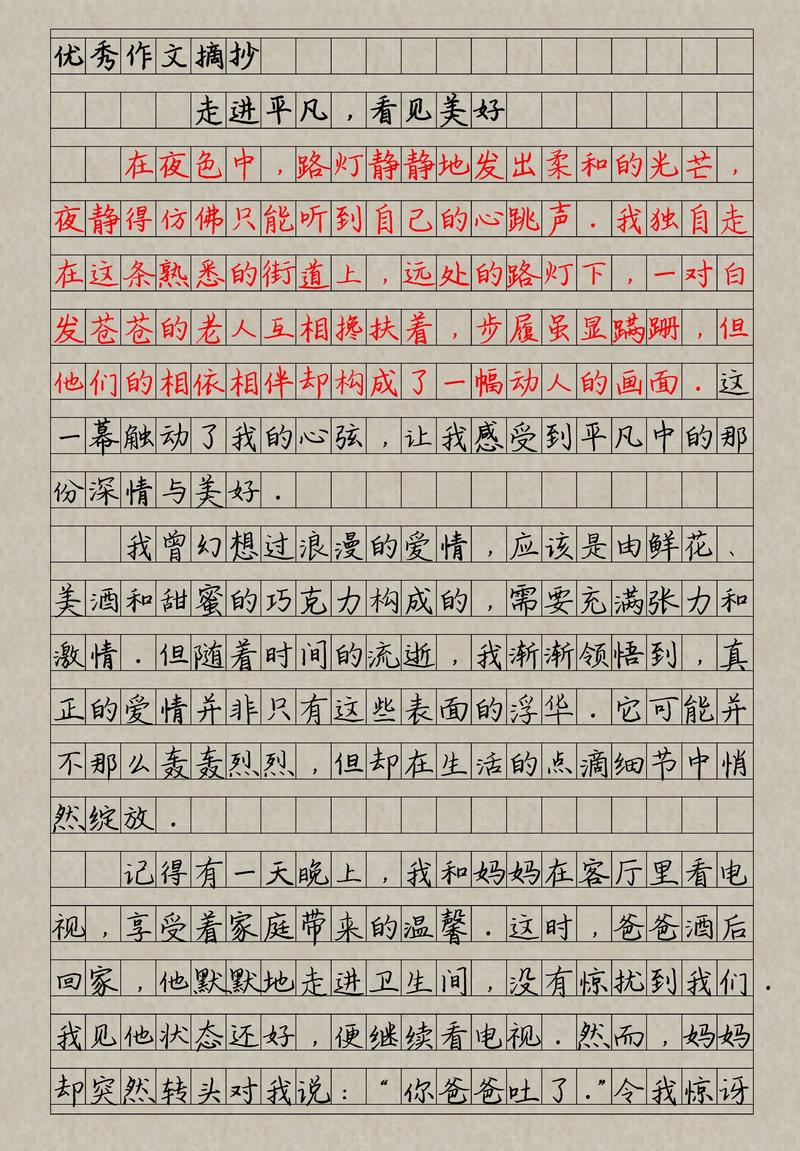 优秀作文摘抄
走进平凡，看见美好
在夜色中，路灯静静地发出柔和的光芒，
夜静得仿佛只能听到自己的心跳声．我独自走
在这条熟悉的街道上，远处的路灯下，一对白
发苍苍的老人互相搀扶着，步履虽显蹒跚，但
他们的相依相伴却构成了一幅动人的画面．这
一幕触动了我的心弦，让我感受到平凡中的那
份深情与美好．
我曾幻想过浪漫的爱情，应该是由鲜花、
美酒和甜蜜的巧克力构成的，需要充满张力和
激情．但随着时间的流逝，我渐渐领悟到，真
正的爱情并非只有这些表面的浮华．它可能并
不那么轰轰烈烈，但却在生活的点滴细节中悄
然绽放．
记得有一天晚上，我和妈妈在客厅里看电
视，享受着家庭带来的温馨．这时，爸爸酒后
回家，他默默地走进卫生间，没有惊扰到我们．
我见他状态还好，便继续看电视．然而，妈妈
却突然转头对我说：“你爸爸吐了．”令我惊讶